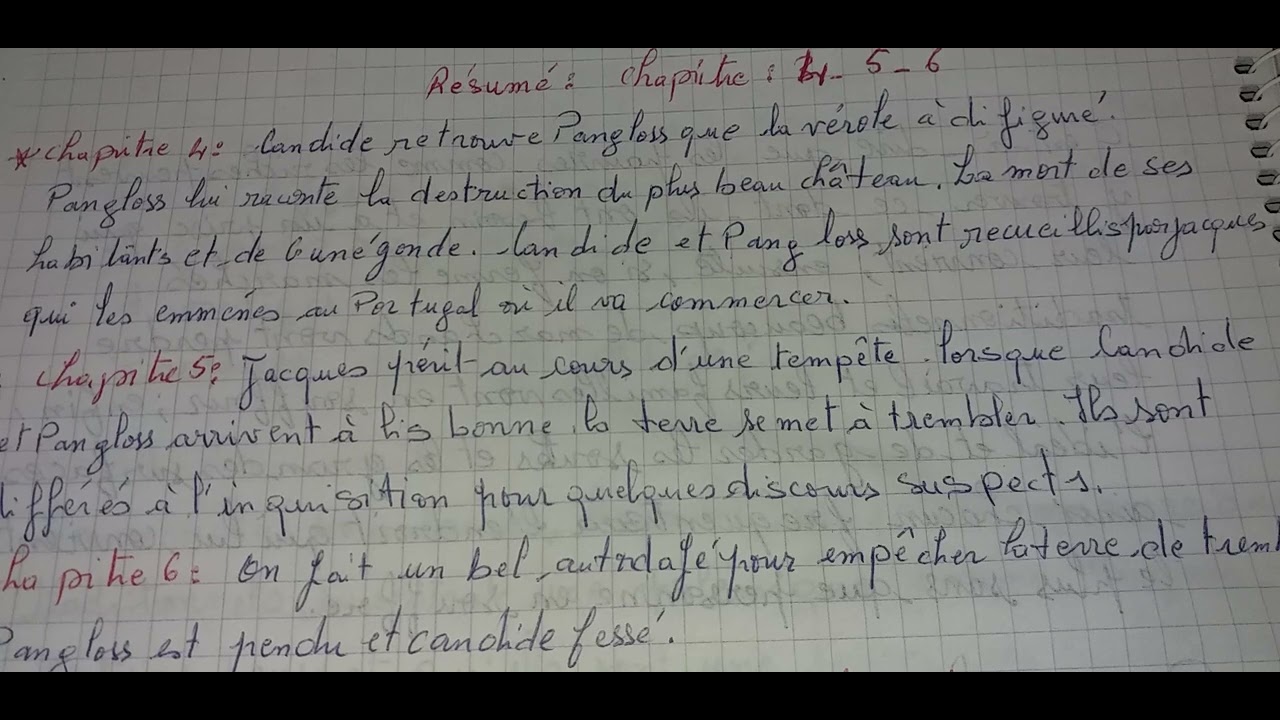 Résumé : chapitre : 4 - 5 - 6
* chapitre 4 : Candide retrouve Pangloss que la vérole à difiguré.
Pangloss lui raconte la destruction du plus beau château. La mort de ses
habitants et de Cunégonde. Candide et Pangloss sont recueillis par Jacques
qui les emmenés au Portugal où il va commercer.
chapitre 5 : Jacques périt au cours d'une tempête. lorsque Candide
et Pangloss arrivent à lisbonne la terre se met à trembler. Ils sont
différés à l'inquisition pour quelques discours suspects.
chapitre 6 : On fait un bel autodafé pour empêcher la terre de trem
Pangloss est pendu et candide fessé.